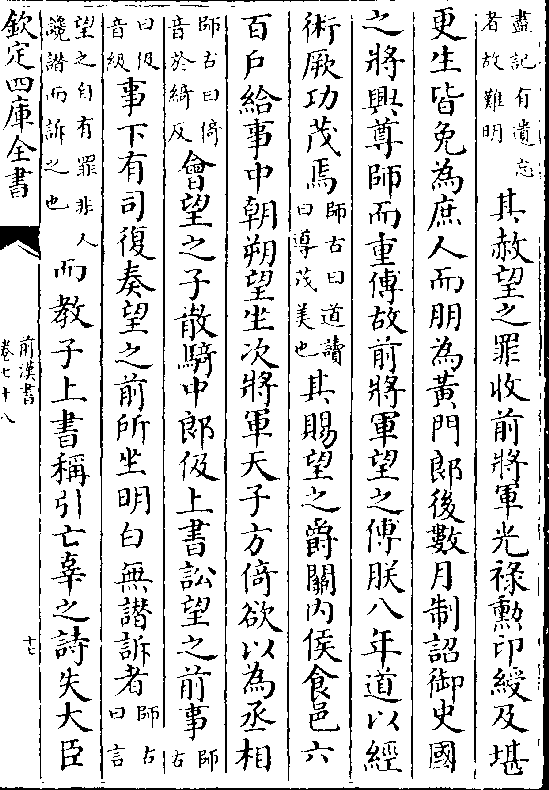 盡記有遺忘者故難明其赦望之罪收前將軍光祿勲印綬及堪
更生皆免為庶人而朋為黃門郎後數月制詔御史國
之將興尊師而重傅故前將軍望之傅朕八年道以經
術厥功茂焉師古曰道讀曰導茂美也其賜望之爵關内侯食邑六
百戶給事中朝朔望坐次將軍天子方倚欲以為丞相
師古曰倚音於綺反會望之子散騎中郎伋上書訟望之前事師古
曰伋音級事下有司復奏望之前所坐明白無譖訴者師古曰言
望之自有罪非人讒譖而訴之也而教子上書稱引亡辜之詩失大臣
欽定四庫全書
前漢書
卷七十八
十七